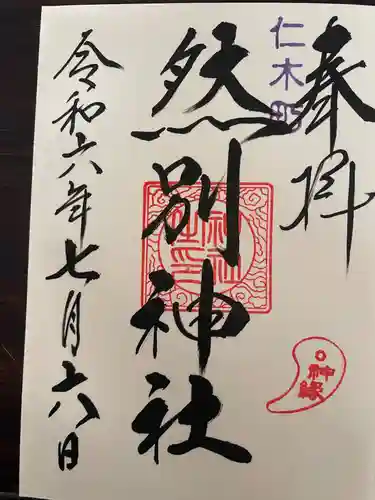 奉拝
仁木町
然別神社
神縁
令和六年七月六日